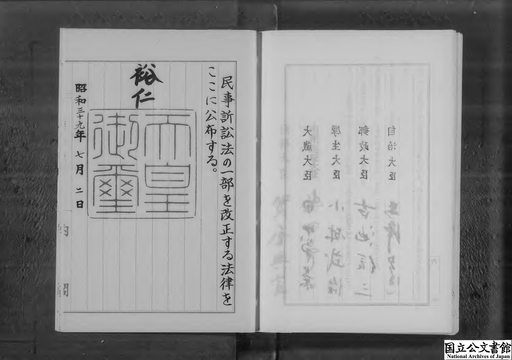 民事訴訟法の一部を改正する法律を
ここに公布する。
裕仁
天皇
御璽
昭和三十九年七月二日
自治大臣
郵政大臣
厚生大臣
大蔵大臣
国立公文書館
National Archives of Japan